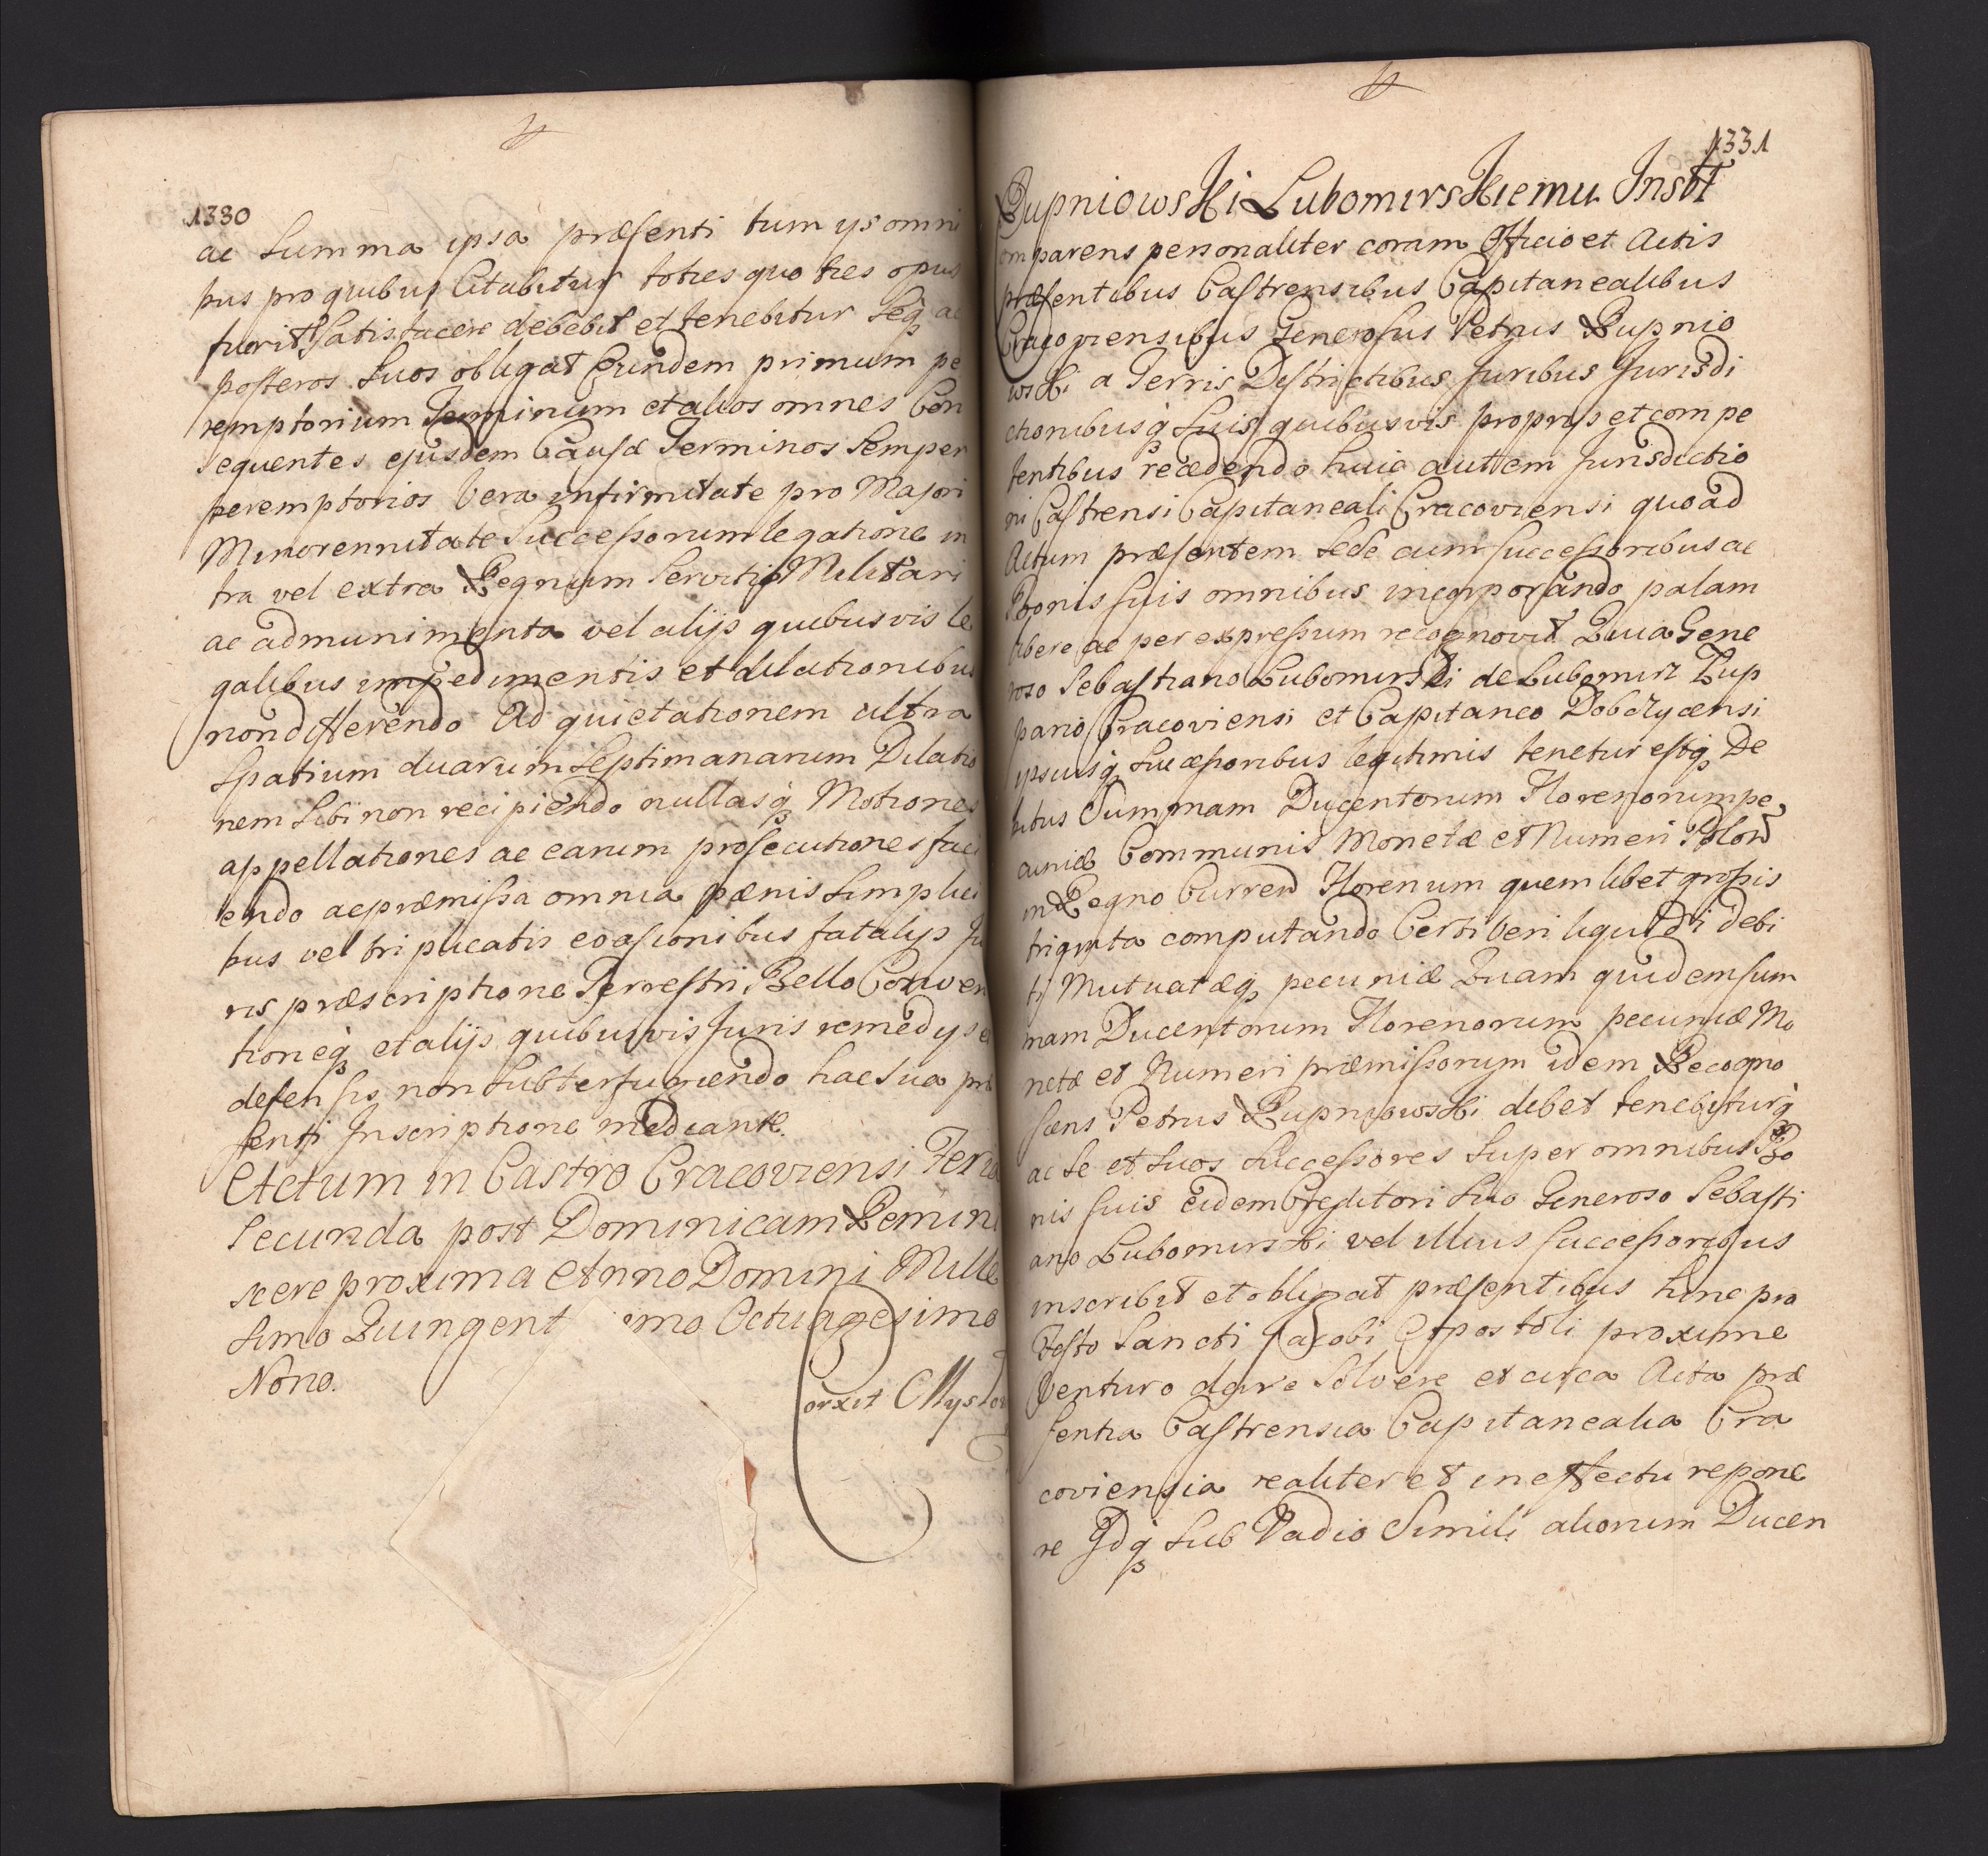 1330
ac Summa ipsa præsenti tum ijs omni
bus pro quibus Citabitur toties quoties opus
fuerit Satisfacere debebit et tenebitur Seq̨ ac
posteros Suos obligat Eundem primum pe
remptorium Terminum et alios omnes Con
sequentes ejusdem Causæ Terminos Semper
peremptorios Vera infirmitate pro Majori
Minorennitate Successorum legatione in
tra vel extra Regnum Servitijs Militari
ac admunimenta vel alijs quibusvis le
galibus impedimentis et dilationibus
non differendo Ad quietationem ultra
Spatium duarum Septimanarum Dilatio
nem Sibi non recipiendo nullasq̨ Motiones
appellationes ac earum prosecutiones faci
endo ac præmissa omnia pænis Simplici
bus vel triplicatis evasionibus fatalijs Ju
ris præscriptione Terrestri, Bello Conven
tioneq̨ et alijs quibusvis Juris remedijs e
defensis non Subterfugiendo hac Sua præ
senti Inscriptione mediante.
Actum in Castro Cracoviensi Feria
Secunda post Dominicam Remini
scere proxima Anno Domini Mille
simo Quingent imo Octuagesimo
Nono.
Corxit Myslow
1331
Rupniowski Lubomirskiemu Inst
Comparens personaliter coram Officio et Actis
præsentibus Castrensibus Capitanealibus
Cracoviensibus Generosus Petrus Rupnio
wski a Terris Districtibus Juribus Jurisdi
ctionibusq̨ Suis quibusvis proprijs et compe
tentibus recedendo huic autem Jurisdictio
ni Castrensi Capitaneali Cracoviensi quoad
Actum præsentem Sese cum successoribus ac
Bonis suis omnibus incorporando palam
libere ac per expressum recognovit Quia Gene
roso Sebastiano Lubomirski de Lubomirz Zup
pario Cracoviensi et Capitaneo Dobczycensi
ipsiusq̨ Successoribus legitimis tenetur estq̨ De
bitus Summam Ducentorum Florenorum pe
cuniæ Communis Monetæ et Numeri Polon
in Regno Curren Florenum quemlibet grossis
triginta computando Certi veri liquidi debi
ti Mutuatæq̨ pecuniæ Quam quidem sum
mam Ducentorum Florenorum pecuniæ Mo
netæ et Numeri præmissorum idem Recogno
scens Petrus Rupniowski debet tenebiturq̨
ac Se et Suos Successores Super omnibus Bo
nis suis eidem Creditori Suo Generoso Sebasti
ano Lubomirski vel illius successoribus
inscribit et obligat præsentibus hinc pro
Festo Sancti Jacobi Apostoli proxime
Venturo dare Solvere et circa Acta præ
sentia Castrensia Capitanealia Cra
coviensia realiter et in effectu repone
re Idq̨ Sub Vadio Simili aliorum Ducen